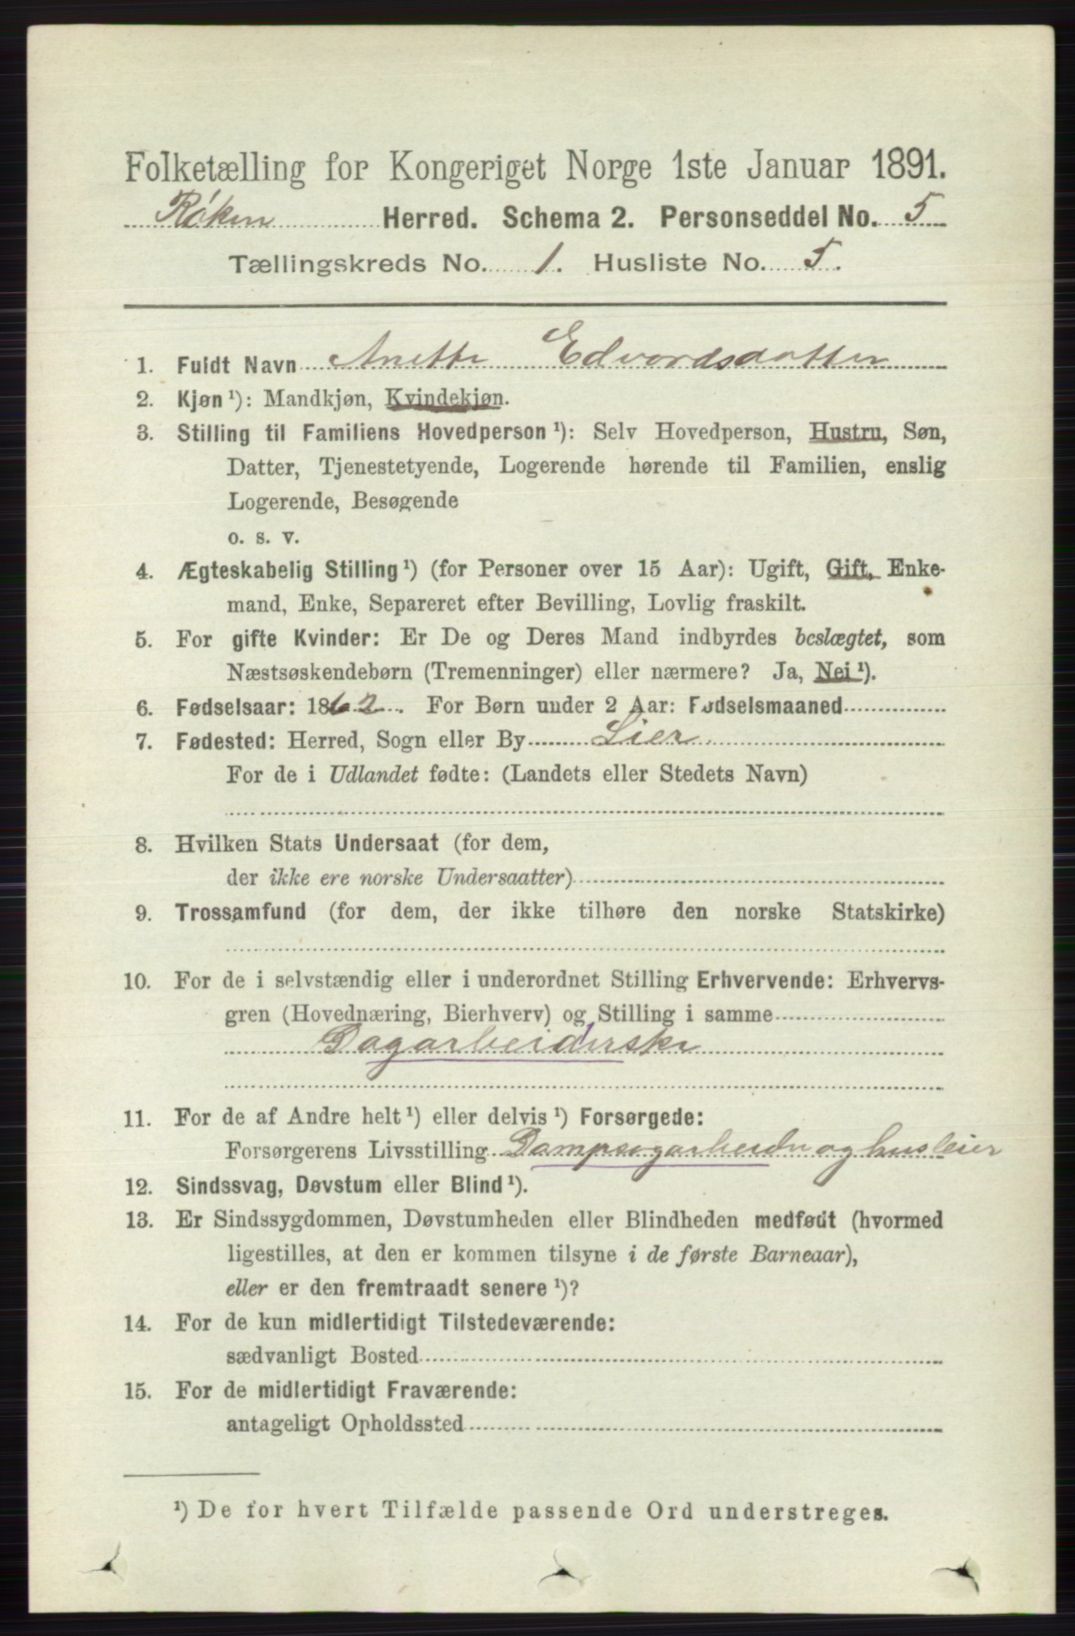 Folketælling for Kongeriget Norge 1ste Januar 1891.
Røken Herred. Schema 2. Personseddel No. 5
Tællingskreds No. 1. Husliste No. 5.
1. Fuldt Navn Anette Edvordsdatter
2. Kjøn ¹): Mandkjøn, Kvindekjøn.
3. Stilling til Familiens Hovedperson ¹): Selv Hovedperson, Hustru, Søn,
Datter, Tjenestetyende, Logerende hørende til Familien, enslig
Logerende, Besøgende
o. s. v.
4. Ægteskabelig Stilling ¹) (for Personer over 15 Aar): Ugift, Gift, Enke-
mand, Enke, Separeret efter Bevilling, Lovlig fraskilt.
5. For gifte Kvinder: Er De og Deres Mand indbyrdes beslægtet, som
Næstsøskendebørn (Tremenninger) eller nærmere? Ja, Nei ¹).
6. Fødselsaar: 1862. For Børn under 2 Aar: Fødselsmaaned
7. Fødested: Herred, Sogn eller By Lier
For de i Udlandet fødte: (Landets eller Stedets Navn)
8. Hvilken Stats Undersaat (for dem,
der ikke ere norske Undersaatter)
9. Trossamfund (for dem, der ikke tilhøre den norske Statskirke)
10. For de i selvstændig eller i underordnet Stilling Erhvervende: Erhvervs-
gren (Hovednæring, Bierhverv) og Stilling i samme
Dagarbeiderske
11. For de af Andre helt ¹) eller delvis ¹) Forsørgede:
Forsørgerens Livsstilling Dampsagarbeider og husleier
12. Sindssvag, Døvstum eller Blind ¹).
13. Er Sindssygdommen, Døvstumheden eller Blindheden medfødt (hvormed
ligestilles, at den er kommen tilsyne i de første Barneaar),
eller er den fremtraadt senere ¹)?
14. For de kun midlertidigt Tilstedeværende:
sædvanligt Bosted
15. For de midlertidigt Fraværende:
antageligt Opholdssted
¹) De for hvert Tilfælde passende Ord understreges.